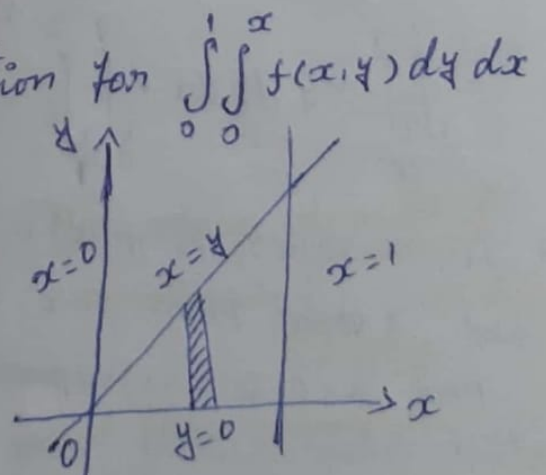 ion for ∫₀¹ ∫₀ˣ f(x,y) dy dx
y
x=0
x=y
x=1
0
y=0
x